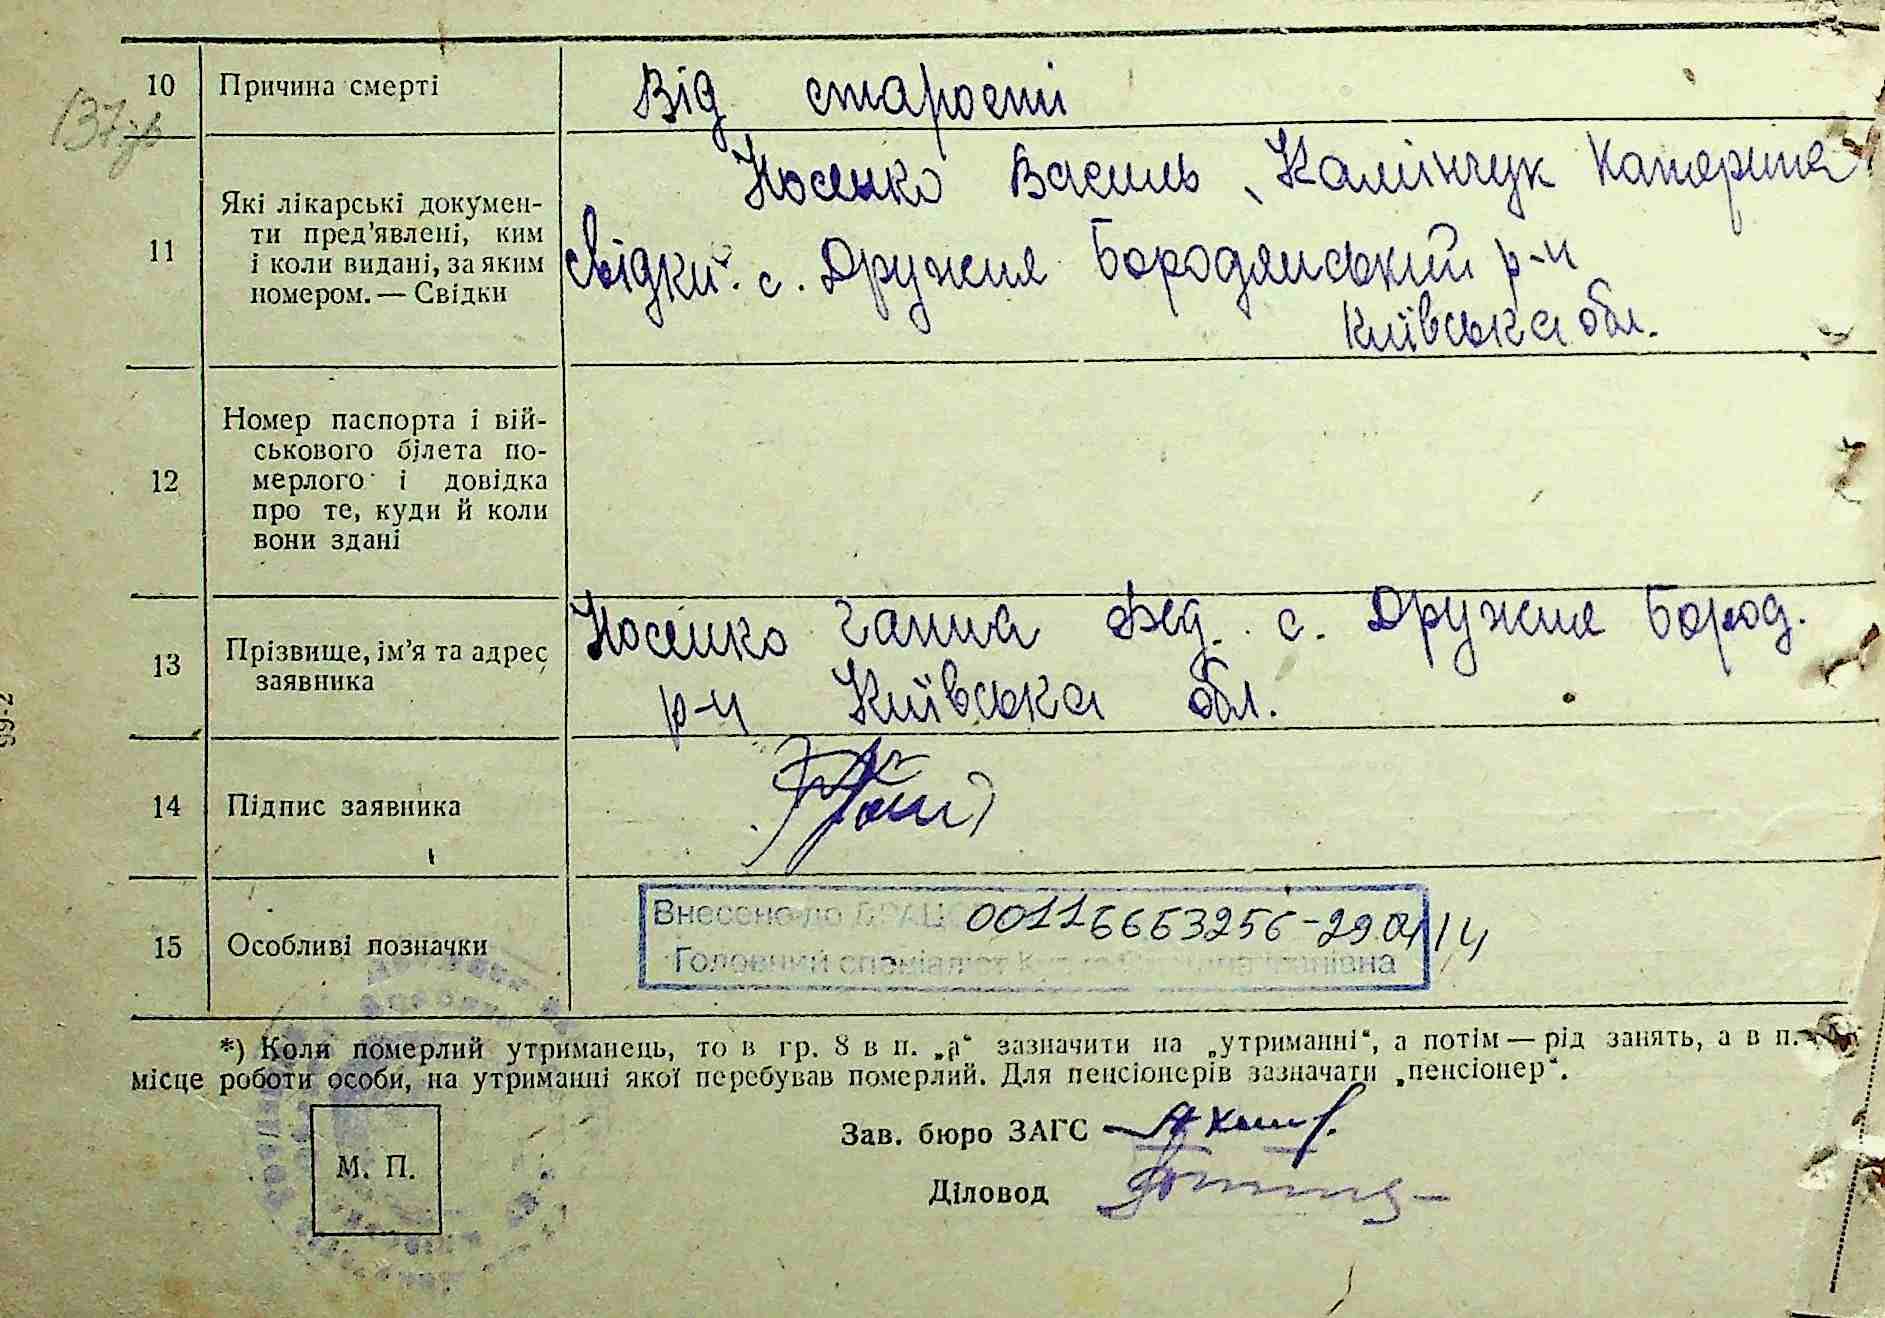 137зв
10 Причина смерті
Від старости
11 Які лікарські докумен-
ти пред'явлені, ким
і коли видані, за яким
номером. — Свідки
Носенко Василь, Камінчук Катерина
свідки. с. Дружня Бородянський р-н
Київська обл.
12 Номер паспорта і вій-
ськового білета по-
мерлого і довідка
про те, куди й коли
вони здані
13 Прізвище, ім'я та адрес
заявника
Носенко Ганна Фед. с. Дружня Бород.
р-н Київська обл.
14 Підпис заявника
15 Особливі позначки
Внесено до ДРАЦС 00116663256-29.04.14
Головний спеціаліст
*) Коли померлий утриманець, то в гр. 8 в п. „а“ зазначити на „утриманні“, а потім — рід занять, а в п.
місце роботи особи, на утриманні якої перебував померлий. Для пенсіонерів зазначати „пенсіонер“.
Зав. бюро ЗАГС
М. П.
Діловод
99-2